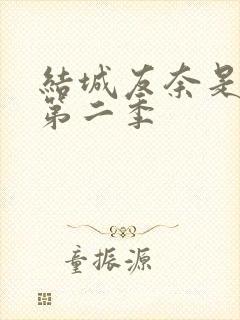 結城友奈是
第二季
童振源